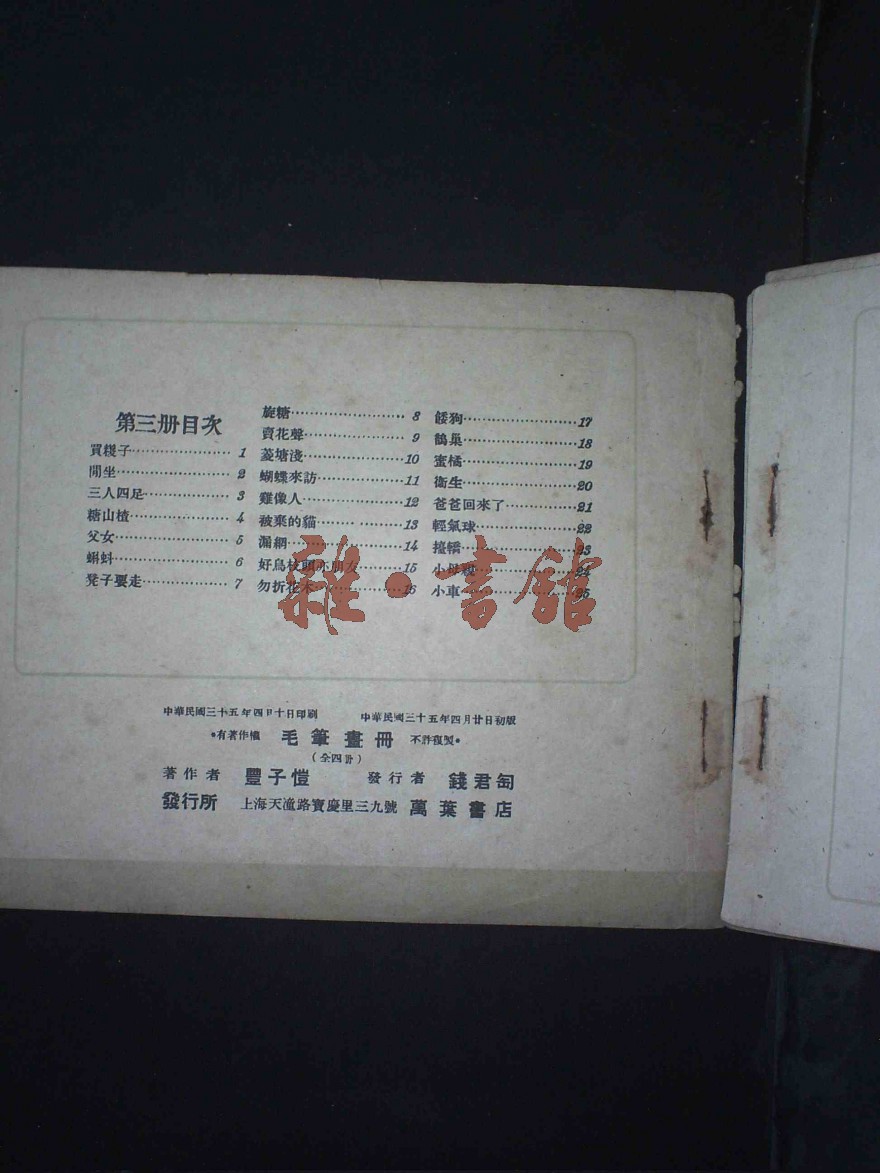 第三册目次
買糉子 1
閒坐 2
三人四足 3
糖山楂 4
父女 5
蝌蚪 6
凳子要走 7
旋糖 8
賣花聲 9
菱塘淺 10
蝴蝶來訪 11
雞像人 12
被棄的貓 13
漏網 14
好鳥枝頭亦朋友 15
勿折花木 16
餧狗 17
鵲巢 18
蜜橘 19
衞生 20
爸爸回來了 21
輕氣球 22
擡轎 23
24
小車 25
雜·書館
中華民國三十五年四月十日印刷 中華民國三十五年四月廿日初版
•有著作權 毛筆畫冊 不許複製•
(全四冊)
著作者 豐子愷 發行者 錢君匋
發行所 上海天潼路寶慶里三九號 萬葉書店